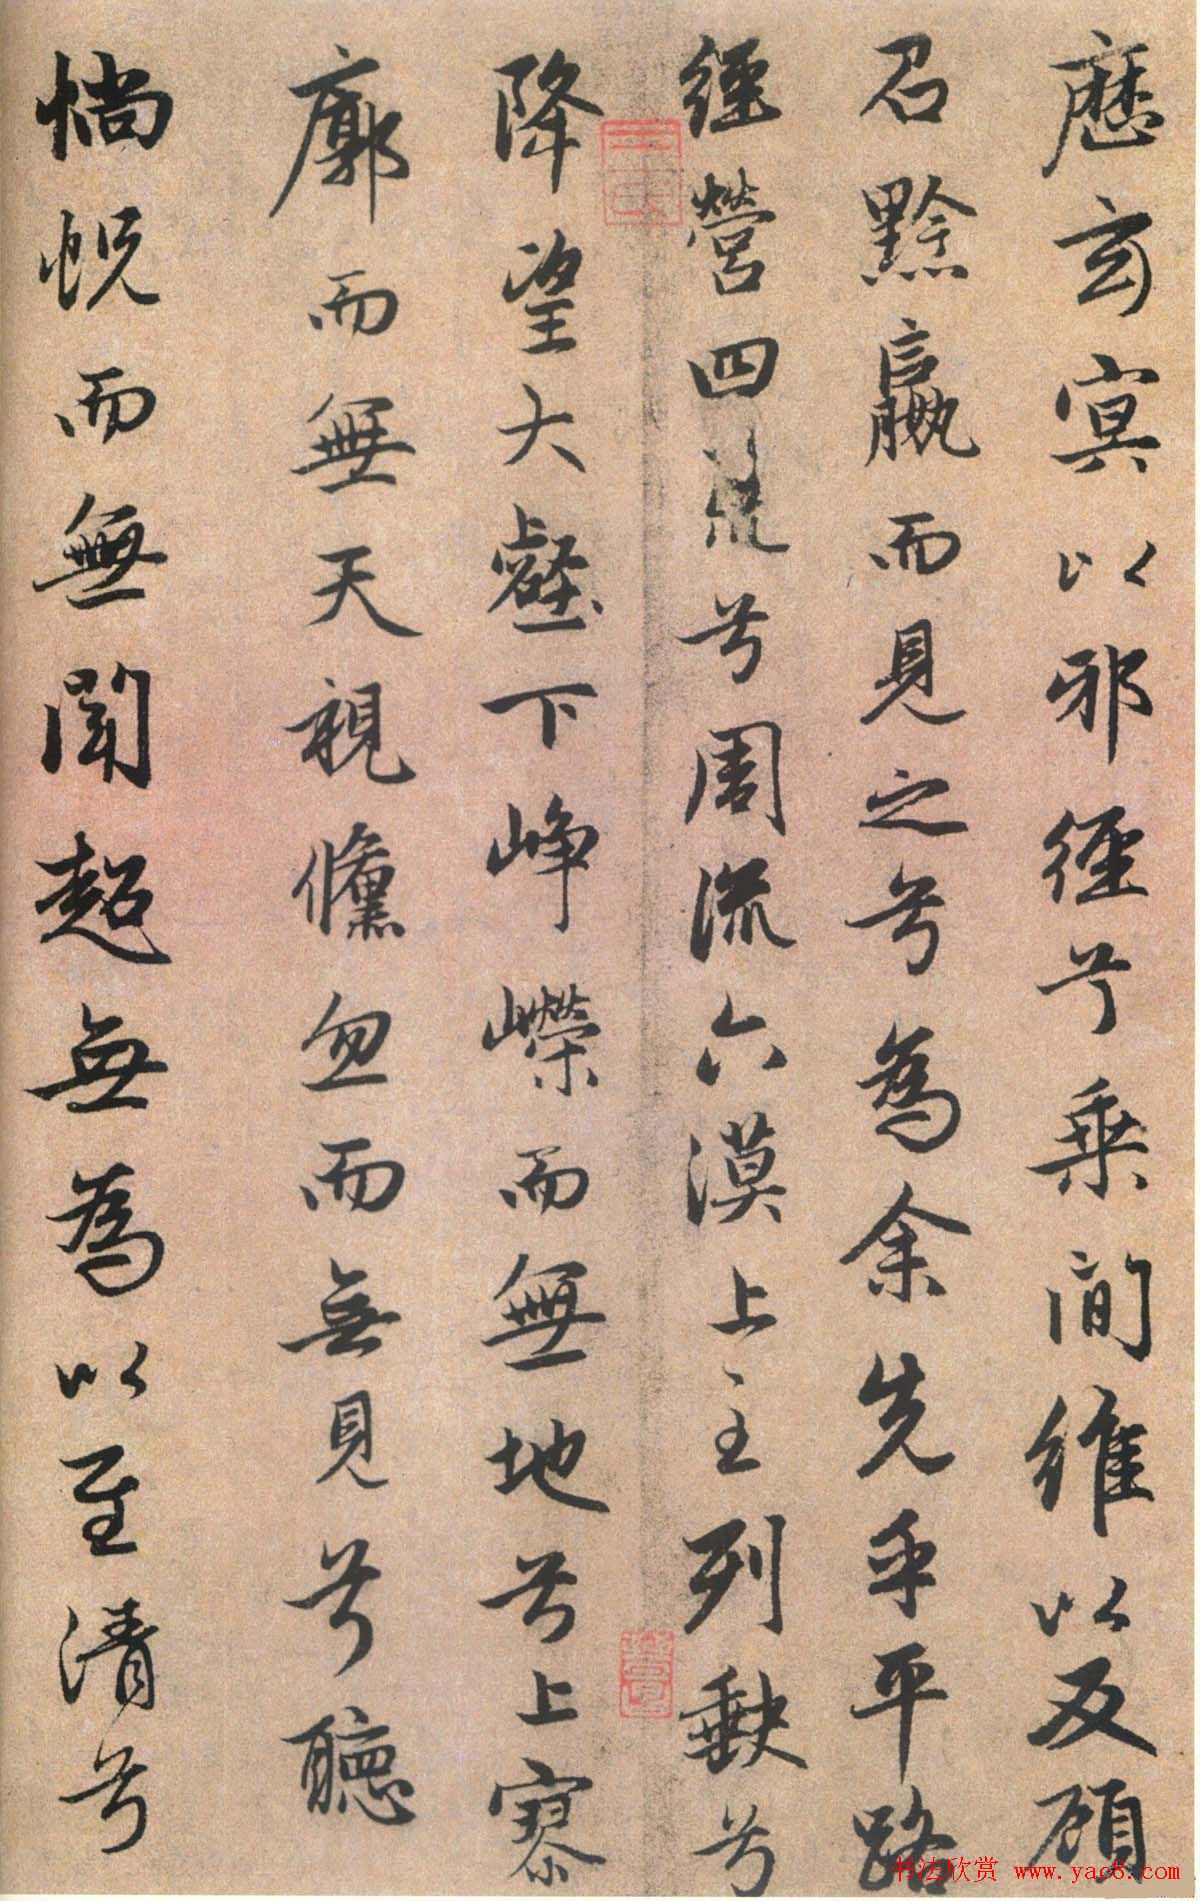 歷玄冥以邪徑兮乘間維以反顧
召黔嬴而見之兮為余先乎平路
經營四荒兮周流六漠上至列缺兮
降望大壑下峥嶸而無地兮上寥
廓而無天視儵忽而無見兮聽
惝怳而無聞超無為以至清兮
书法欣赏 www.yac8.com